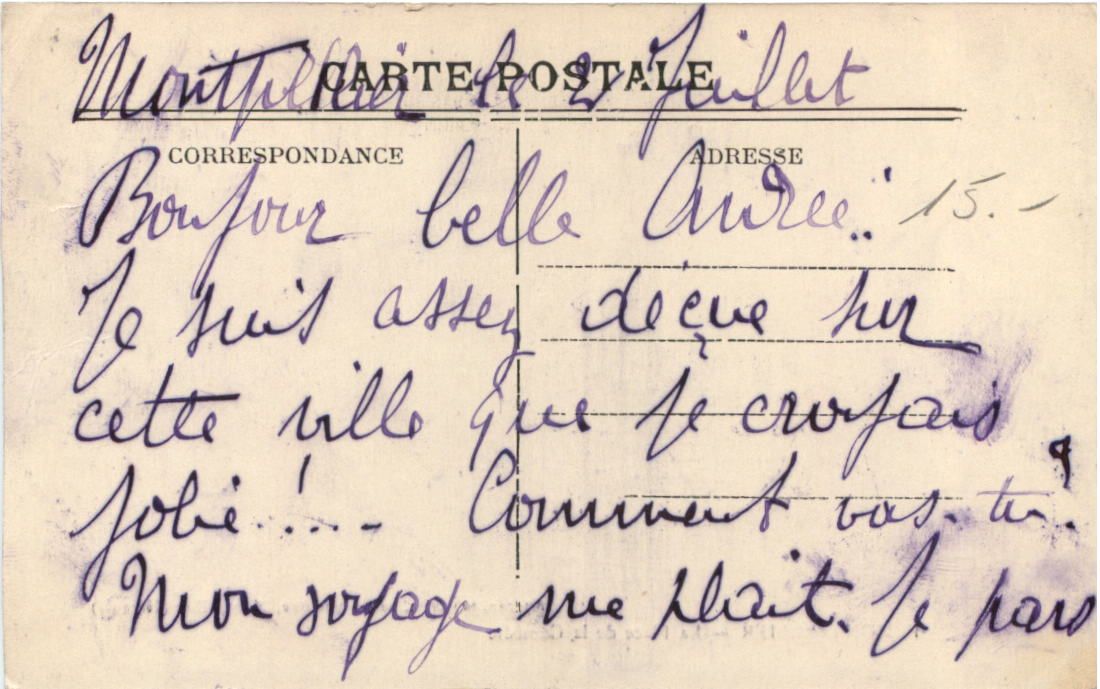 Montpellier le 2 Juillet
CARTE POSTALE
CORRESPONDANCE
ADRESSE
Bonjour belle Andrée..
15.-
Je suis assez déçue sur
cette ville que je croyais
jolie!... Comment vas-tu?
Mon voyage me plaît. Je pars